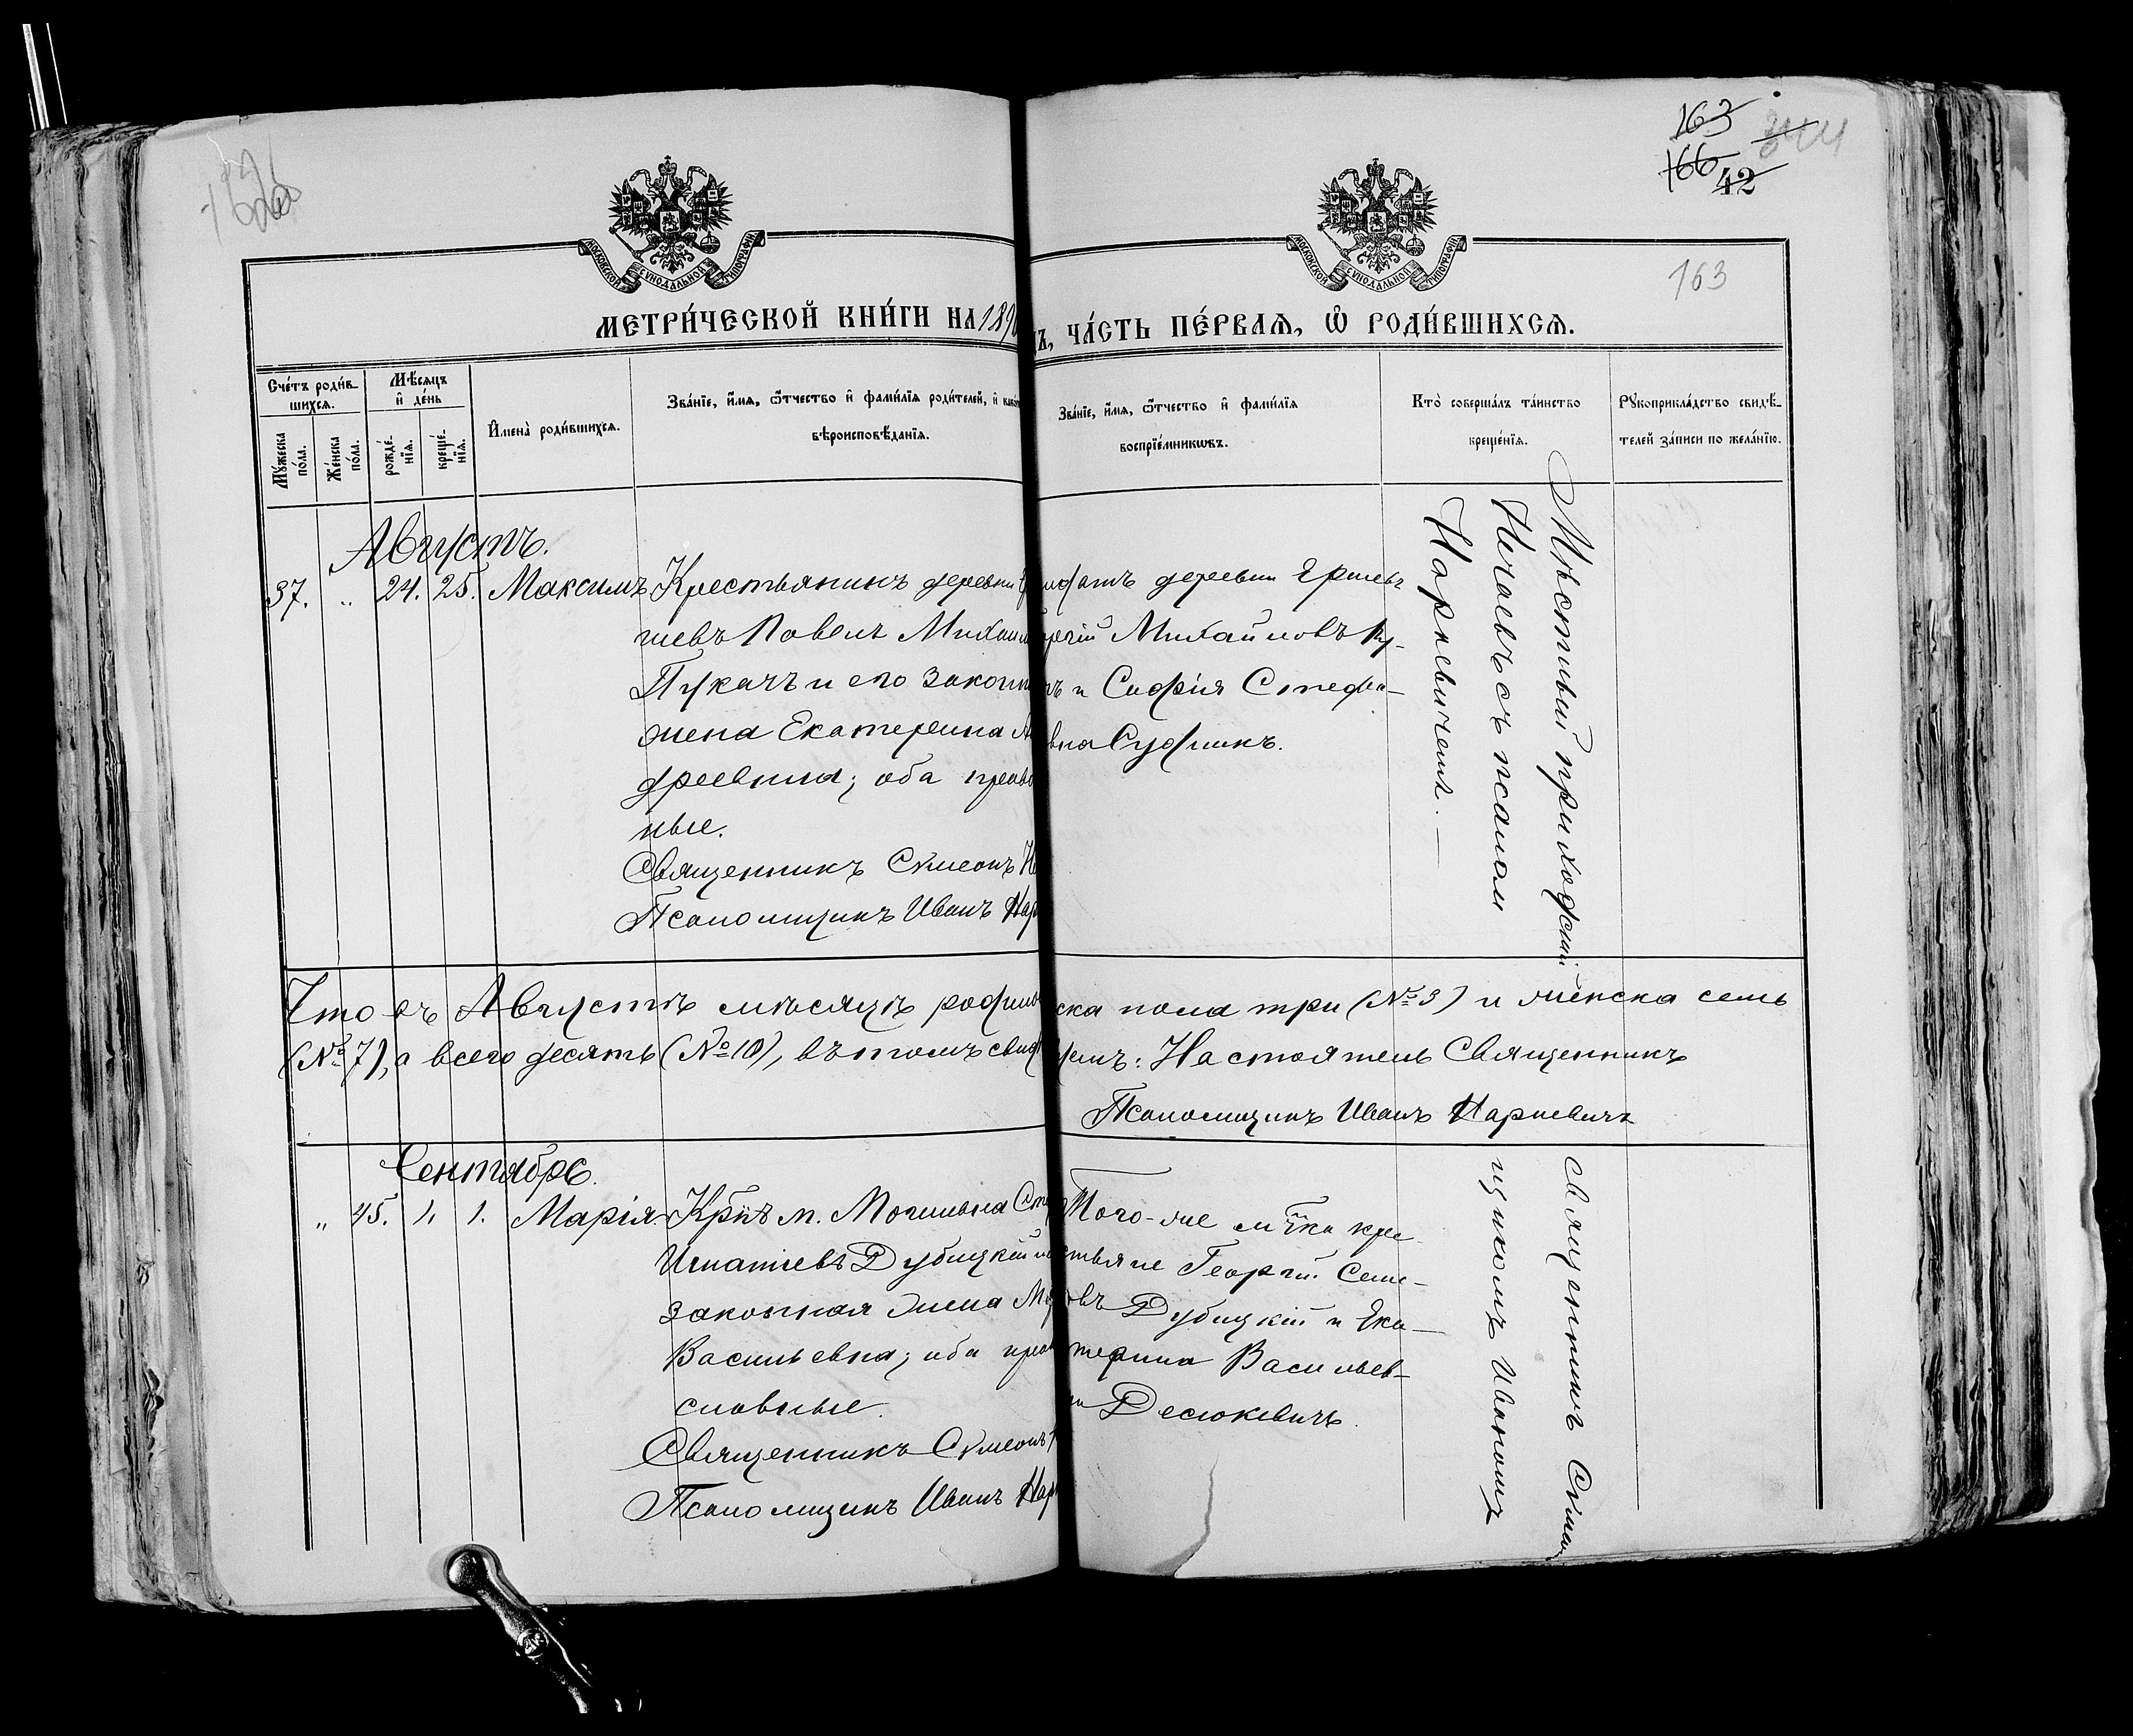 163
166
42
163
МОСКОВСКОЙ СУНОДАЛЬНОЙ ТИПОГРАФІИ
МОСКОВСКОЙ СУНОДАЛЬНОЙ ТИПОГРАФІИ
МЕТРИ́ЧЕСКОЙ КНИ́ГИ НА 189
Ъ, ЧА́СТЬ ПЕ́РВАѦ, Ѡ҆ РОДИ́ВШИХСѦ.
Сче́тъ роди́в-
шихсѧ.
Мꙋ́жеска
по́ла.
Же́нска
по́ла.
Мѣ́сѧцъ
и҆ де́нь
рожде́-
нїѧ.
креще́-
нїѧ.
И҆мена̀ роди́вшихсѧ.
Зва́нїе, и҆́мѧ, ѻ҆́тчество и҆ фами́лїѧ роди́телей, и҆ како
вѣроисповѣ́данїѧ.
Зва́нїе, и҆́мѧ, ѻ҆́тчество и҆ фами́лїѧ
воспрїе́мникѡвъ.
Кто̀ соверша́лъ та́инство
креще́нїѧ.
Рꙋкоприкла́дство свидѣ́-
телей за́писи по жела́нїю.
Августъ.
37. „ 24. 25. Максимъ
Крестьянинъ деревни Ер
шевъ Павелъ Михаил
Пукачъ и его законн
жена Екатерина Ан
дреевна; оба право
ные.
Священникъ Сѵмеонъ Не
Псаломщикъ Иванъ Нар
деревни Ершевъ
ргій Михайловъ Пу-
ъ и Софія Стефа-
вна Судникъ.
Мѣстный приходскій
Нечаевъ съ псалом
Наркевичемъ. —
Что въ Августѣ мѣсяцѣ родило
ска пола три (№ 3) и женска семь
(№ 7), а всего десять (№ 10), въ томъ свид
емъ: Настоятель Священникъ
Псаломщикъ Иванъ Наркевичъ
Сентябрь.
„ 45. 1. 1. Марія.
Кр̃нъ м. Могильна Сте
Игнатіевъ Дубицкій и
законная жена Мар
Васильевна; оба право
славные.
Священникъ Сѵмеонъ
Псаломщикъ Иванъ Нар
Того-же м̃чка кре-
стьяне Георгій Семе-
овъ Дубицкій и Ека-
терина Васильев-
на Десюкевичъ.
Священникъ Сѵмео
щикомъ Иваномъ